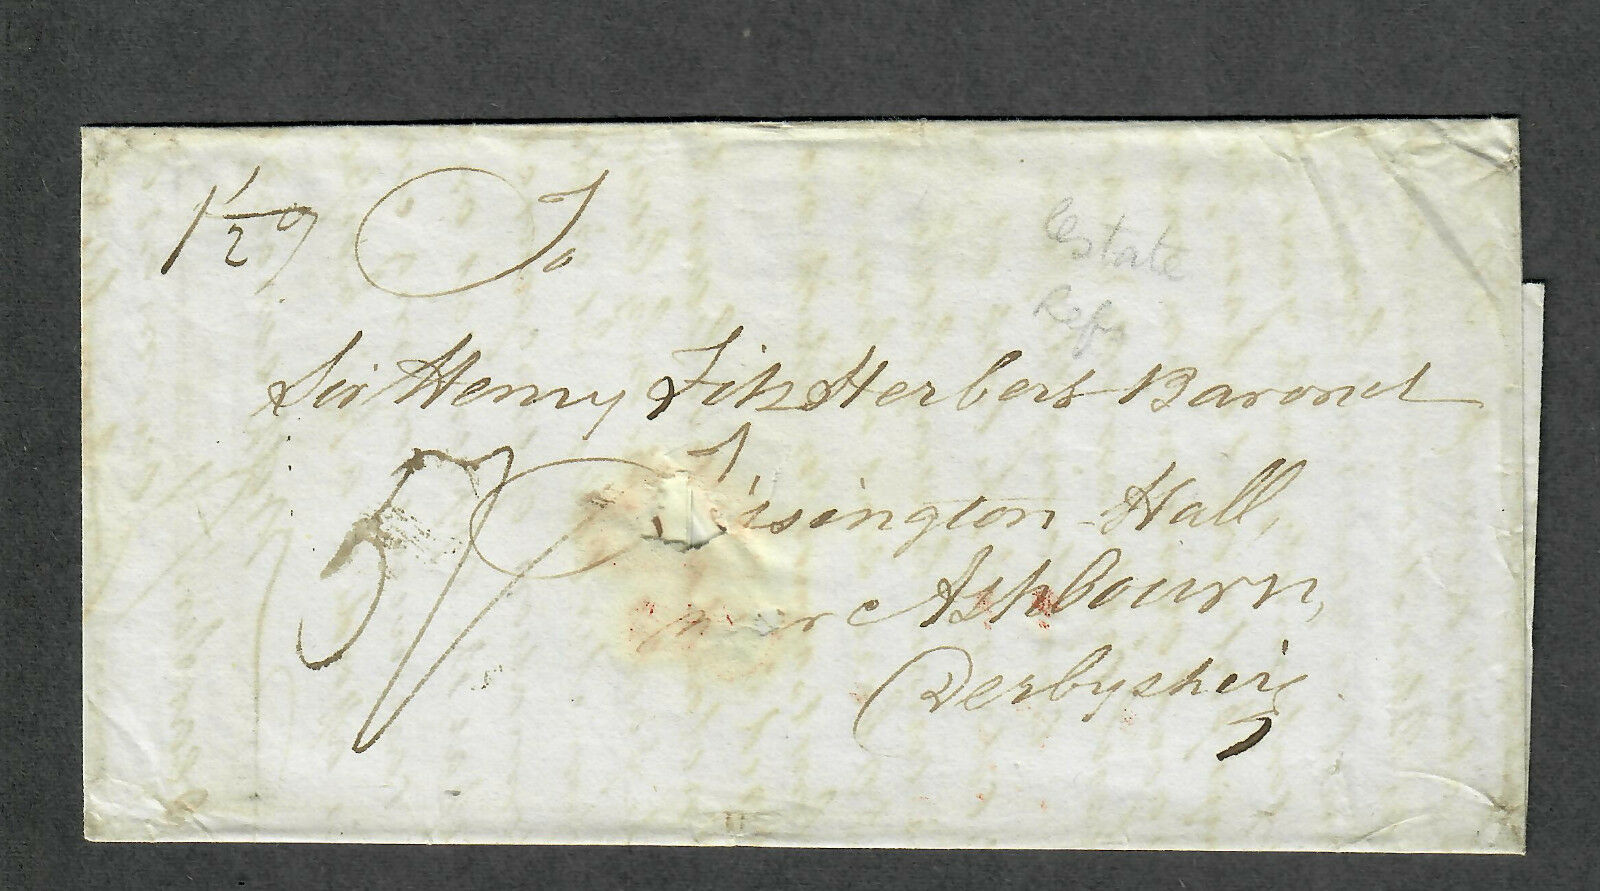 1 1/2 9 To
Estate
Refs
Sir Henry FitzHerbert Baronet
Tissington Hall,
near Ashbourn,
Derbyshire